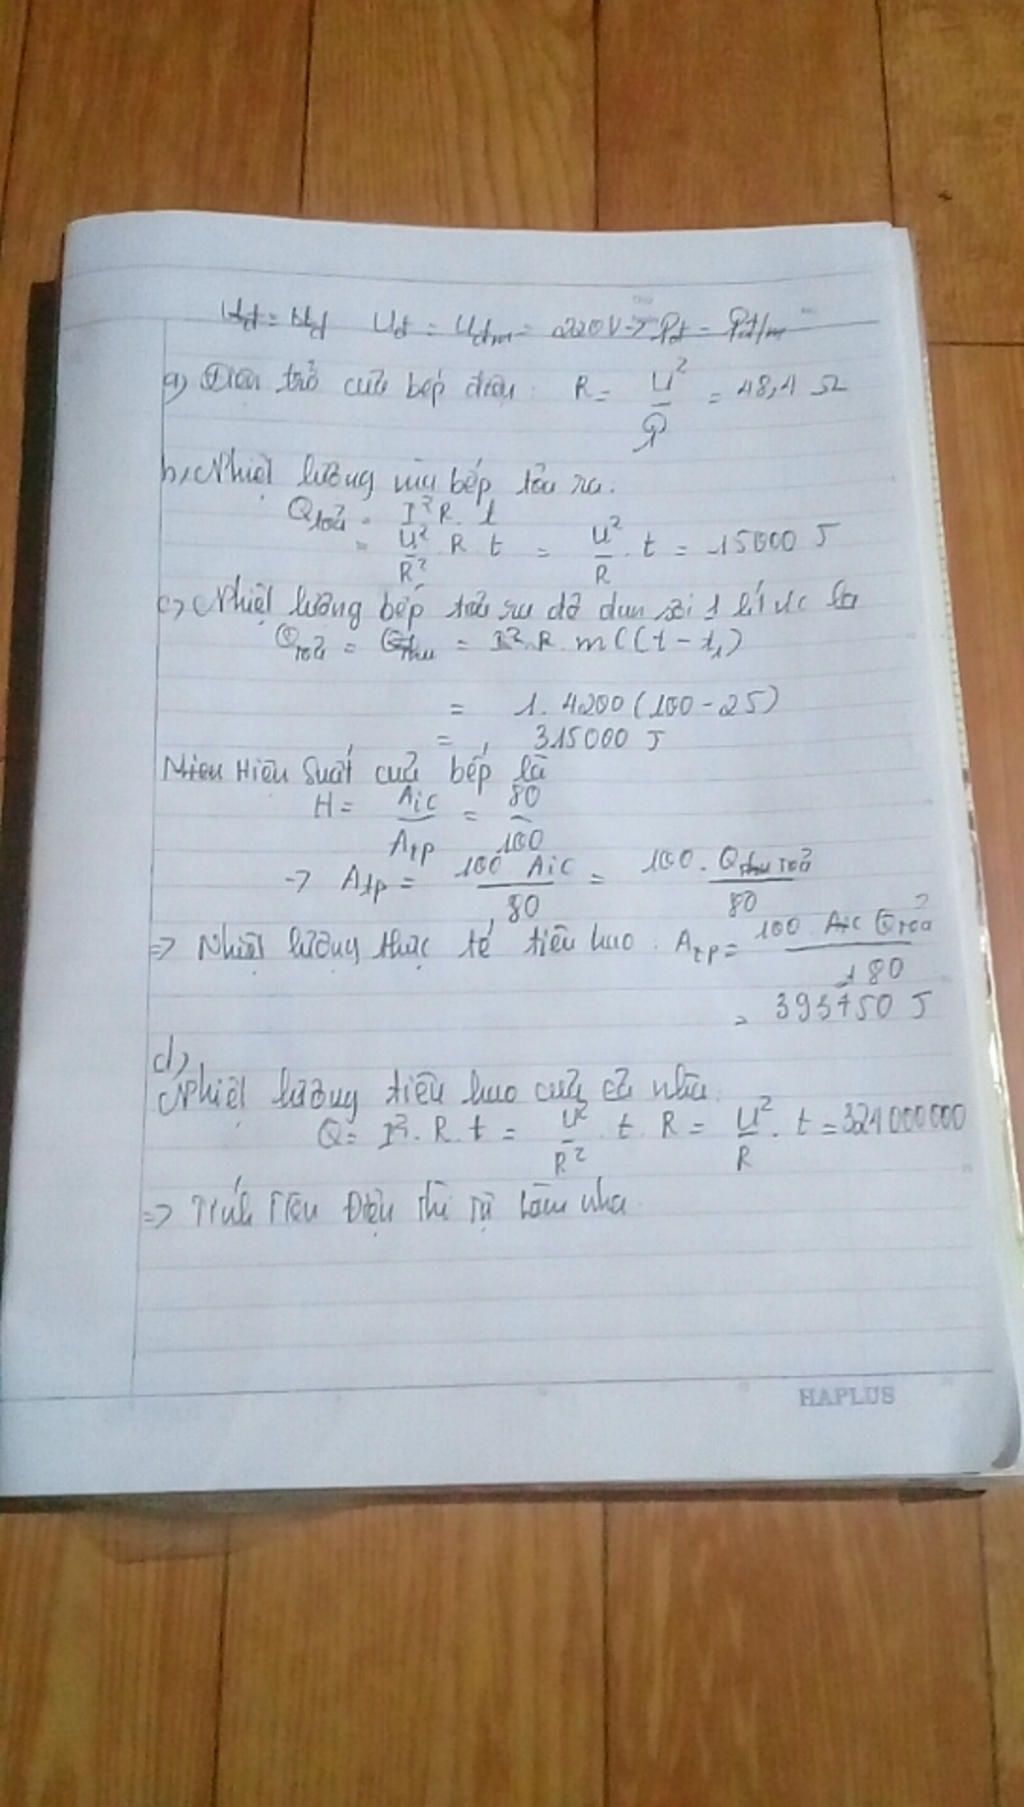 Uđ = Uđm = 220V → Pđ = Pđm
a) Điện trở của bếp điện: R = U²/P = 48,4 Ω
b, Nhiệt lượng mà bếp tỏa ra.
Q tỏa = I².R.t
= U²/R² . R t = U²/R . t = 15000 J
c, Nhiệt lượng bếp tỏa ra để đun sôi 1 lít nc là
Q tỏa = Q thu = mC(t - t₁)
= 1. 4200 (100 - 25)
= 315000 J
Hiệu suất của bếp là
H = Aic/Atp = 80/100
→ Atp = 100 Aic/80 = 100 . Q tỏa/80
=> Nhiệt lượng thực tế tiêu hao: Atp = 100 Q tỏa/80
= 393750 J
d,
Nhiệt lượng tiêu hao của cả nhà.
Q = I².R.t = U²/R² . t . R = U²/R . t = 324000000
=> Tính Tiền Điện thì tự làm nha
HAPLUS